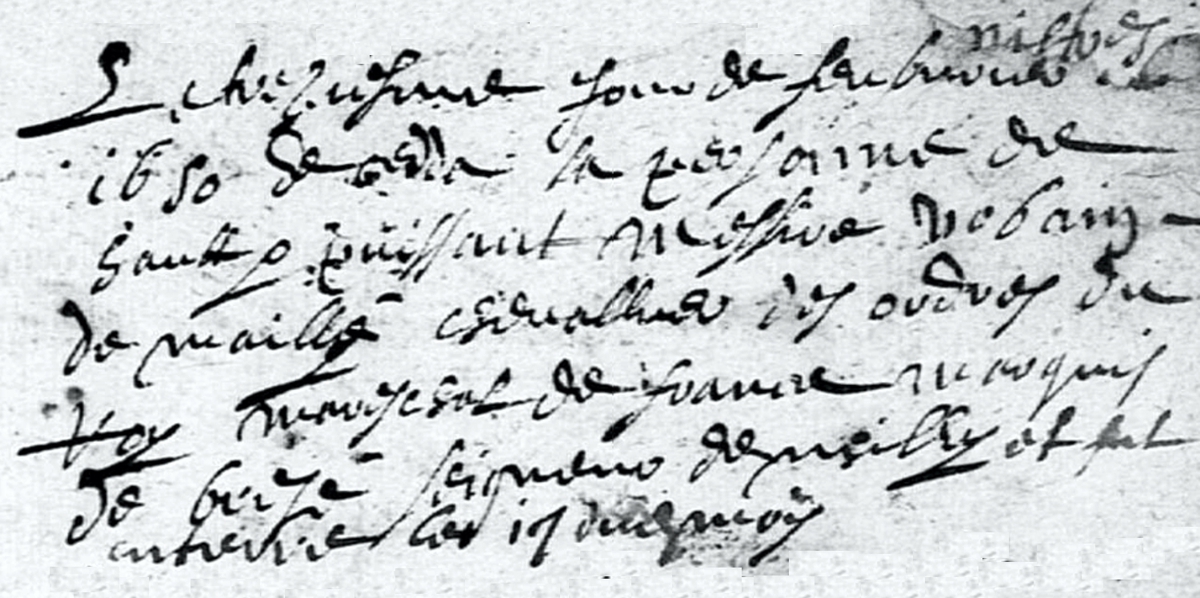 Le treziesme jour de febvrier
1650 deceda la personne de
hault & puissant Messire Urbain
de maillé chevallier des ordres du
Roy mareschal de france marquis
de brezé seigneur de milly et fut
enterré le 17 dudit moys